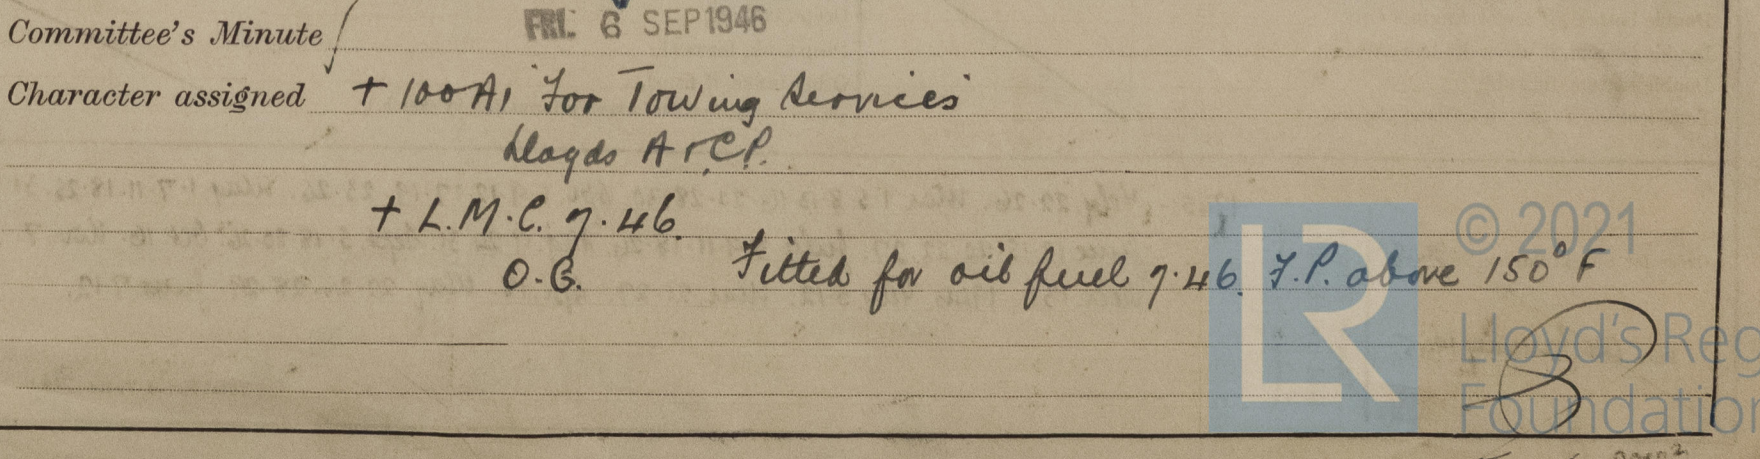 Committee's Minute FRI. 6 SEP 1946
Character assigned + 100A1 For Towing Services
Lloyds A & C.P.
+ L.M.C. 7.46.
O.G. Fitted for oil fuel 7.46. F.P. above 150°F
© 2021
LR
Lloyd's Reg
Foundation